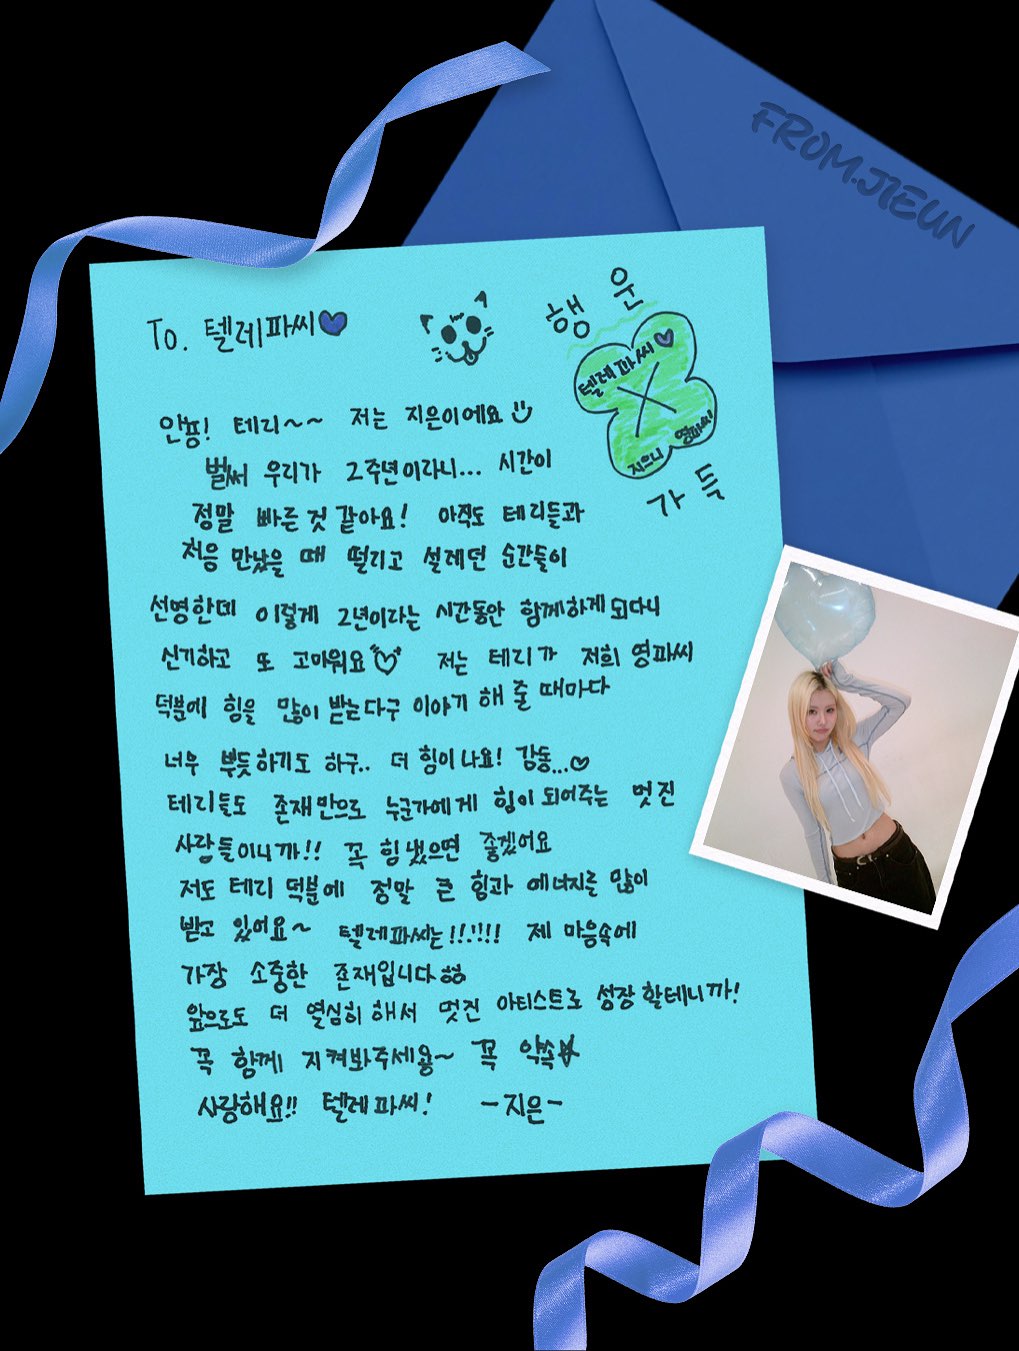 FROM.JIEUN
To. 텔레파씨
행운
텔레파씨
X
지으니 영파씨!
가득
안뇽! 테리~~ 저는 지은이에요
벌써 우리가 2주년이라니... 시간이
정말 빠른 것 같아요! 아직도 테리들과
처음 만났을 때 떨리고 설레던 순간들이
선명한데 이렇게 2년이라는 시간동안 함께하게 되다니
신기하고 또 고마워요 저는 테리가 저희 영파씨
덕분에 힘을 많이 받는다구 이야기 해 줄 때마다
너무 뿌듯하기도 하구.. 더 힘이 나요! 감동...
테리들도 존재만으로 누군가에게 힘이 되어주는 멋진
사람들이니까!! 꼭 힘 냈으면 좋겠어요
저도 테리 덕분에 정말 큰 힘과 에너지를 많이
받고 있어요~ 텔레파씨는!!!!!! 제 마음속에
가장 소중한 존재입니다
앞으로도 더 열심히 해서 멋진 아티스트로 성장 할테니까!
꼭 함께 지켜봐주세용~ 꼭 약쏙
사랑해요!! 텔레파씨! -지은-